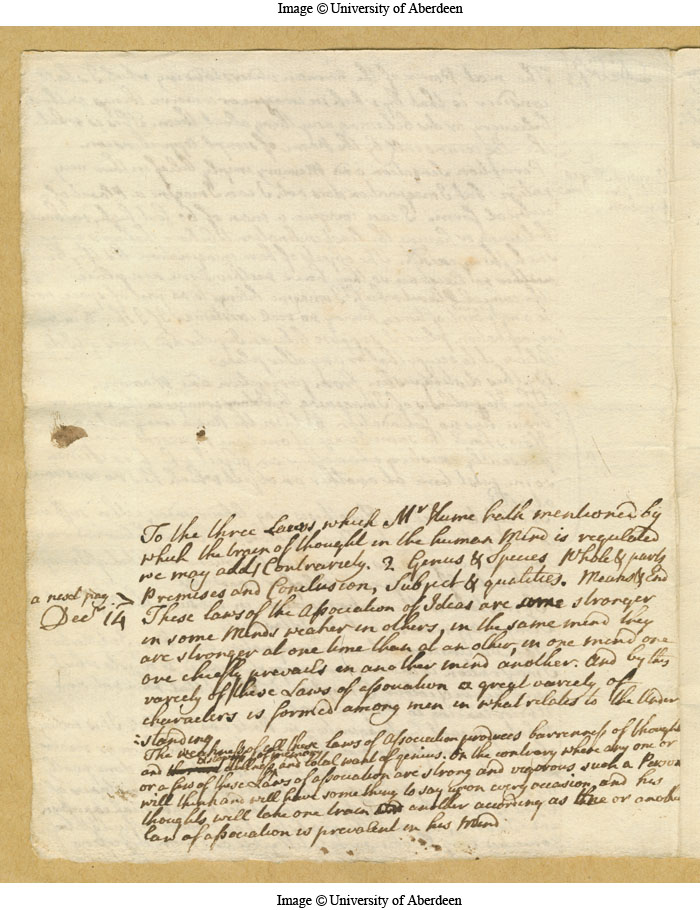 Image © University of Aberdeen
To the three Laws which Mr Hume hath mentioned by
which the train of thought in the human Mind is regulated
we may add 1 Contrariety. 2 Genus & Species Whole & parts
Premises and Conclusion, Subject & qualities. Means & End
a next pag
Decr 14
These laws of the Association of Ideas are stronger
in some Minds weaker in others, in the same mind they
are stronger at one time than at another, in one mind one
one chiefly prevails in another mind another. And by this
variety of these Laws of association a great variety of
characters is formed among men in what relates to the Under
standing
The weakness of all these laws of Association produces barrenness of thought
and dullness and total want of genius. On the contrary where any one or
or a few of these Laws of association are strong and vigorous such a Person
will think and will have some thing to say upon every occasion, and his
thoughts will take one train or another according as this or another
law of association is prevalent in his Mind
Image © University of Aberdeen